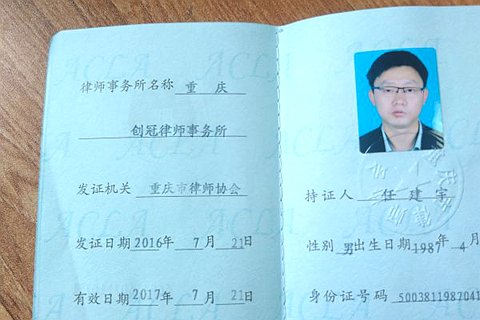 律师事务所名称 重庆
创冠律师事务所
发证机关 重庆市律师协会
发证日期 2016年 7月 21日
有效日期 2017年 7月 21日
持证人 任建宇
性别 男 出生日期 1987年 4月
身份证号码 5003811987041